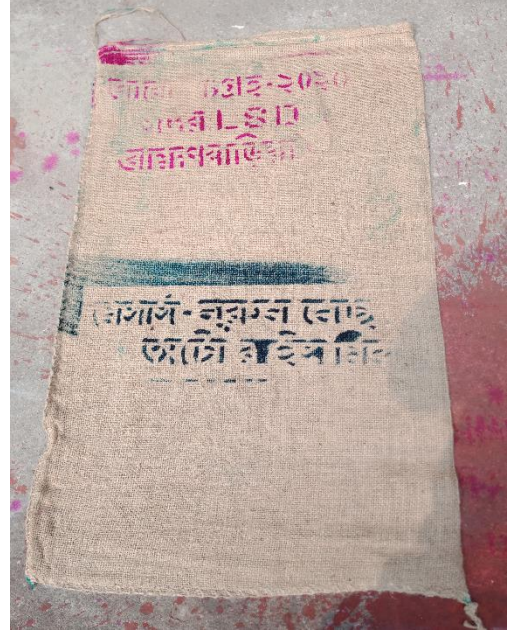 সংগ্রহ-২০২০
সদর LSD
ব্রাহ্মণবাড়িয়া
মেসার্স-নূরুন নেছা
অটো রাইস মিল